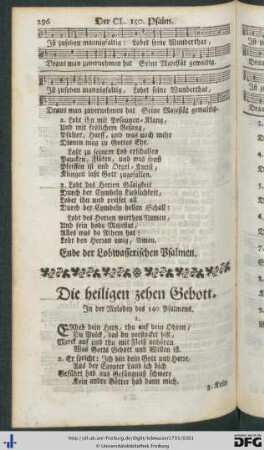 296 Der CL. 150. Psalm.
Ist zusehen mannigfaltig: Lobet seine Wunderthat,
Draus man zuvernehmen hat Seine Majestät gewaltig.
Ist zusehen mannigfaltig, Lobet seine Wunderthat,
Draus man zuvernehmen hat Seine Majestät gewaltig.
2. Lobt ihn mit Posaunen-Klang,
Und mit frölichem Gesang,
Psalter, Harff, und was auch mehr
Dienen mag zu Gottes Ehr.
Laßt zu seinem Lob erschallen
Paucken, Flöten, und was sonst
Pfeiffen ist und Orgel-Kunst,
Klingen laßt Gott zugefallen.
3. Lobt des Herren Gütigkeit
Durch der Cymbeln Lieblichkeit,
Lobet ihn und preiset all
Durch der Cymbeln hellen Schall:
Lobt des Herren werthen Namen,
Und sein hohe Majestat,
Alles was da Athem hat,
Lobt den Herren ewig, Amen.
Ende der Lobwasserischen Psalmen.
Die heiligen zehen Gebott.
In der Melodey des 140. Psalmens.
1.
ERheb dein Hertz, thu auf dein Ohren,
Du Volck, das du verstocket bist,
Merck auf und thu mit Fleiß anhören
Was Gotts Gebott und Willen ist.
2. Er spricht: Ich bin dein Gott und Herre,
Aus der Egypter Land ich dich
Geführt hab aus Gefängnuß schwere
Kein ander Götter hab dann mich.
3. Kein
© Universitätsbibliothek Freiburg
gefördert durch die
DFG